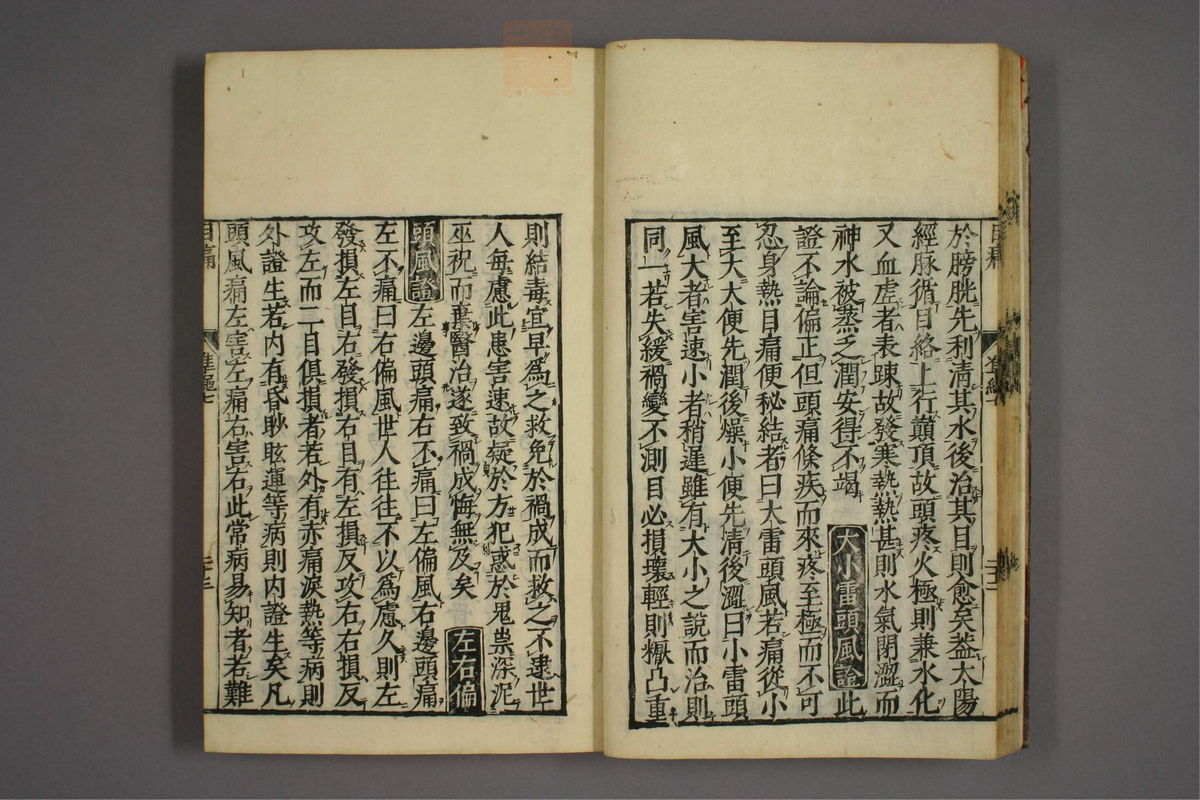 於膀胱先利清其水後治其目則愈矣葢太陽
經脉循目絡上行巔頂故頭疼火極則兼水化
又血虛者表踈故發寒熱熱甚則水氣閉澀而
神水被蒸乏潤安得不竭 大小雷頭風證 此
證不論偏正但頭痛倏疾而來疼至極而不可
忍身熱目痛便秘結者曰大雷頭風若痛從小
至大大便先潤後燥小便先清後澀曰小雷頭
風大者害速小者稍遲雖有大小之說而治則
同一若失緩禍變不測目必損壞輕則䫤凸重
則結毒宜早為之救免於禍成而救之不逮世
人每慮此患害速故凝於方犯惑於鬼祟深泥
巫祝而棄醫治遂致禍成悔無及矣 左右偏
頭風證 左邊頭痛右不痛曰左偏風右邊頭痛
左不痛曰右偏風世人往往不以為慮久則左
發損左目右發損右目有左損反攻右右損反
攻左而二目俱損者若外有赤痛淚熱等病則
外證生若內有昏眇眩運等病則內證生矣凡
頭風痛左害左痛右害右此常病易知者若難
準繩七